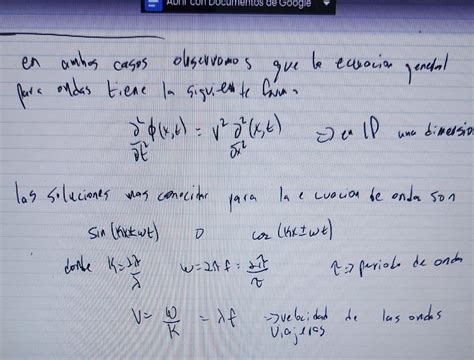 Abrir con Documentos de Google
en ambos casos observamos que la ecuacion general
para ondas tiene la siguiente forma
∂²ϕ(x,t)/∂t² = v² ∂²(x,t)/∂x² ⇒ en 1D una dimension
las soluciones mas conocidas para la ecuacion de onda son
sin(kx±ωt) o cos(kx±ωt)
donde k=2π/λ ω=2πf=2π/τ τ⇒periodo de onda
V=ω/k=λf ⇒velocidad de las ondas
viajeras